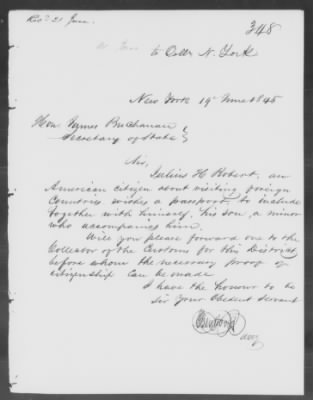 Recd 21 June.
348
to Collr N. York
New York 19th June 1845
Hon. James Buchanan
Secretary of State
Sir,
Julius H Robert, an
American citizen about visiting foreign
Countries wishes a passport, to include
together with himself, his son, a minor
who accompanies him.
Will you please forward one to the
Collector of the Customs for this District
before whom the necessary proof of
citizenship can be made
I have the honour to be
Sir Your Obedient Servant